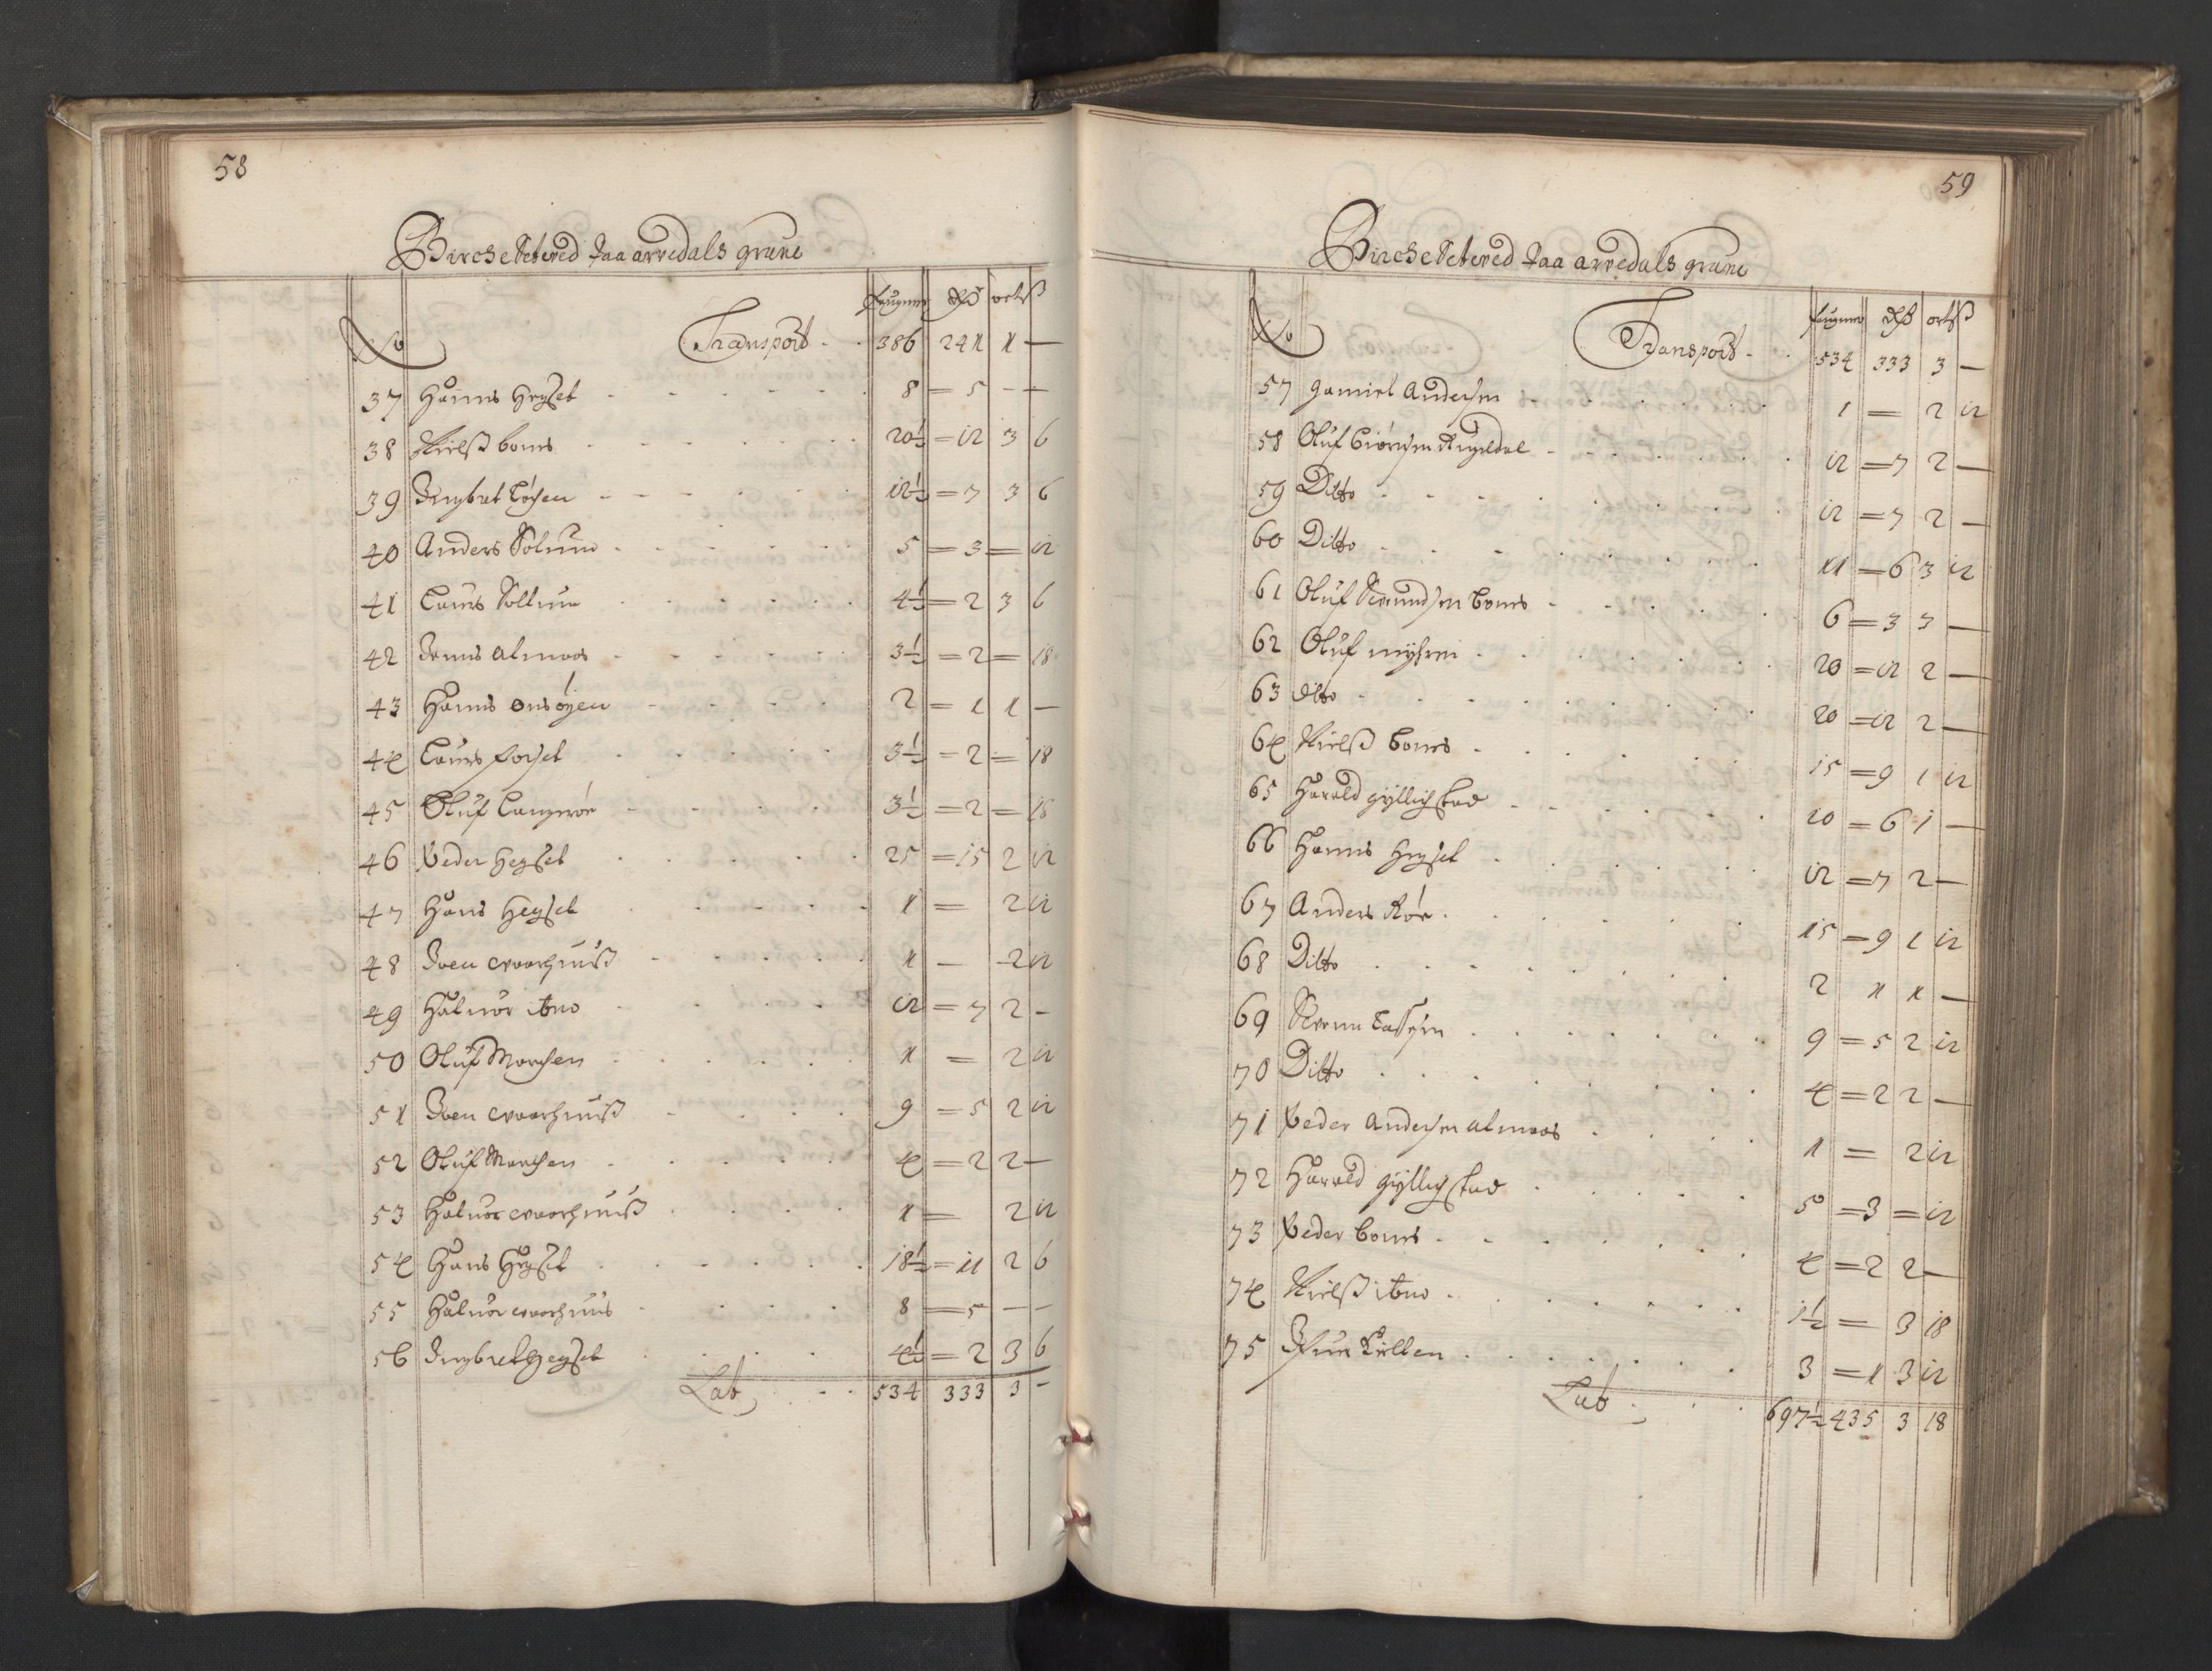 58
Birche Seteved paa arvedals grune
No faugner Rdr ort ß
Transport - 386 241 1 —
37 Hanns Hegset 8 = 5 — —
38 Nielß bones 20½ = 12 3 6
39 Ingbret 12½ = 7 3 6
40 Anders Solumb 5 = 3 = 12
41 Laurs Sollum 4½ = 2 3 6
42 Jenns almaas 3½ = 2 = 18
43 Hanns onsøyen 2 = 1 1 —
44 Laurs forset 3½ = 2 = 18
45 Oluf Langrøe 3½ = 2 = 18
46 Peder Hegset 25 = 15 2 12
47 Hans Hegset 1 = 2 12
48 Joen 1 — 2 12
49 Haluor itno 12 = 7 2 —
50 Oluf Morchen 1 = 2 12
51 Joen 9 = 5 2 12
52 Oluf Morchen 4 = 2 2 —
53 Haluor 1 = 2 12
54 Hans Hegset 18½ = 11 2 6
55 Haluor 8 = 5 — —
56 Ingbret Hegset 4½ = 2 3 6
Lat 534 333 3 —
59
Birche Seteved paa arvedals grune
No faugner Rdr ort ß
Transport - 534 333 3 —
57 gamiel Andersen 1 = 2 12
58 Oluf Biørnsen Rugeldal 12 = 7 2 —
59 Ditto 12 = 7 2 —
60 Ditto 11 = 6 3 12
61 Oluf Siwundsen bones 6 = 3 3 —
62 Oluf myhren 20 = 12 2 —
63 dito 20 = 12 2 —
64 Nielß bones 15 = 9 1 12
65 Harald gyllichstad 10 = 6 1 —
66 Hanns Hegset 12 = 7 2 —
67 Anders Røe 15 = 9 1 12
68 Ditto 2 1 1 —
69 Lassen 9 = 5 2 12
70 Ditto 4 = 2 2 —
71 Peder Andersen almaas 1 = 2 12
72 Harald gyllichstad 5 = 3 = 12
73 Peder bones 4 = 2 2 —
74 Nielß itno 1½ = 3 18
75 Killen 3 = 1 3 12
Lat 697½ 435 3 18